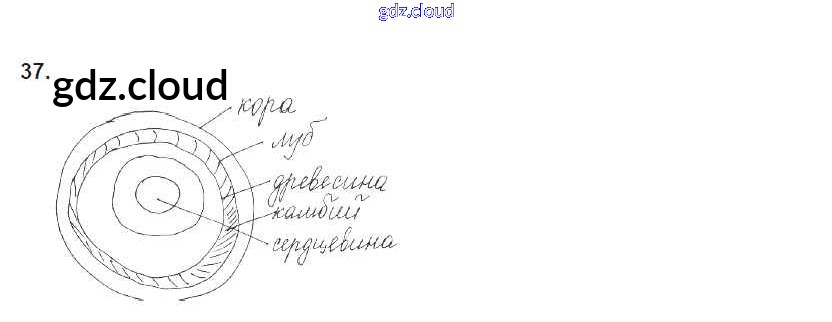 gdz.cloud
37.
gdz.cloud
кора
луб
древесина
камбий
сердцевина